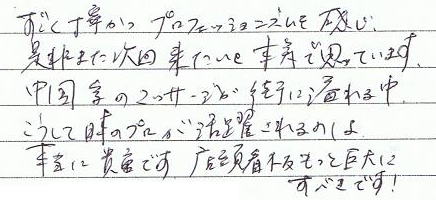 すごく丁寧かつ プロフェッショニズムを感じ、
是非また次回 来たいと 本気で思っています。
中国系のマッサージが 徒に溢れる中、
こうして日本のプロが活躍されるのは
本当に貴重です 店頭看板もっと巨大に
すべきです!